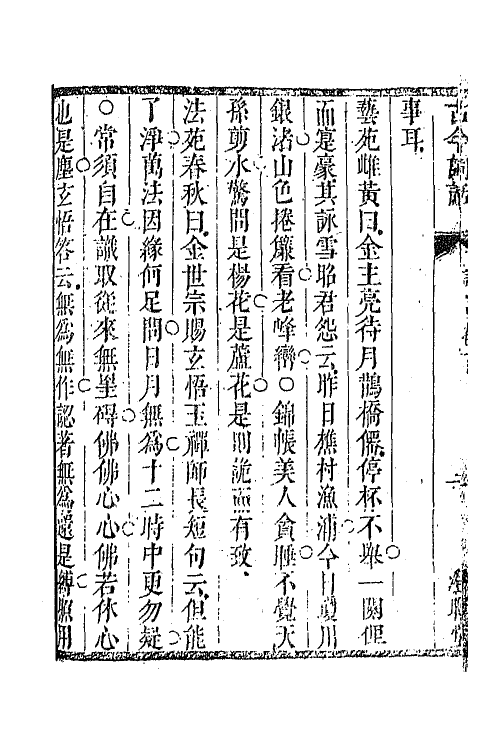 事耳
藝苑雌黃曰金主亮待月鵲橋僊停杯不舉一闋俚
而寔豪其詠雪昭君怨云昨日樵村漁浦今日瓊川
銀渚山色捲簾看老峰巒○錦帳美人貪睡不覺天
孫剪水驚問是楊花是蘆花是則詭而有致
法苑春秋曰金世宗賜玄悟玉禪師長短句云但能
了淨萬法因緣何足問日月無爲十二時中更勿疑
○常須自在識取從來無罣碍佛佛心心佛若休心
也是塵玄悟答云無爲無作認著無爲還是縛照用